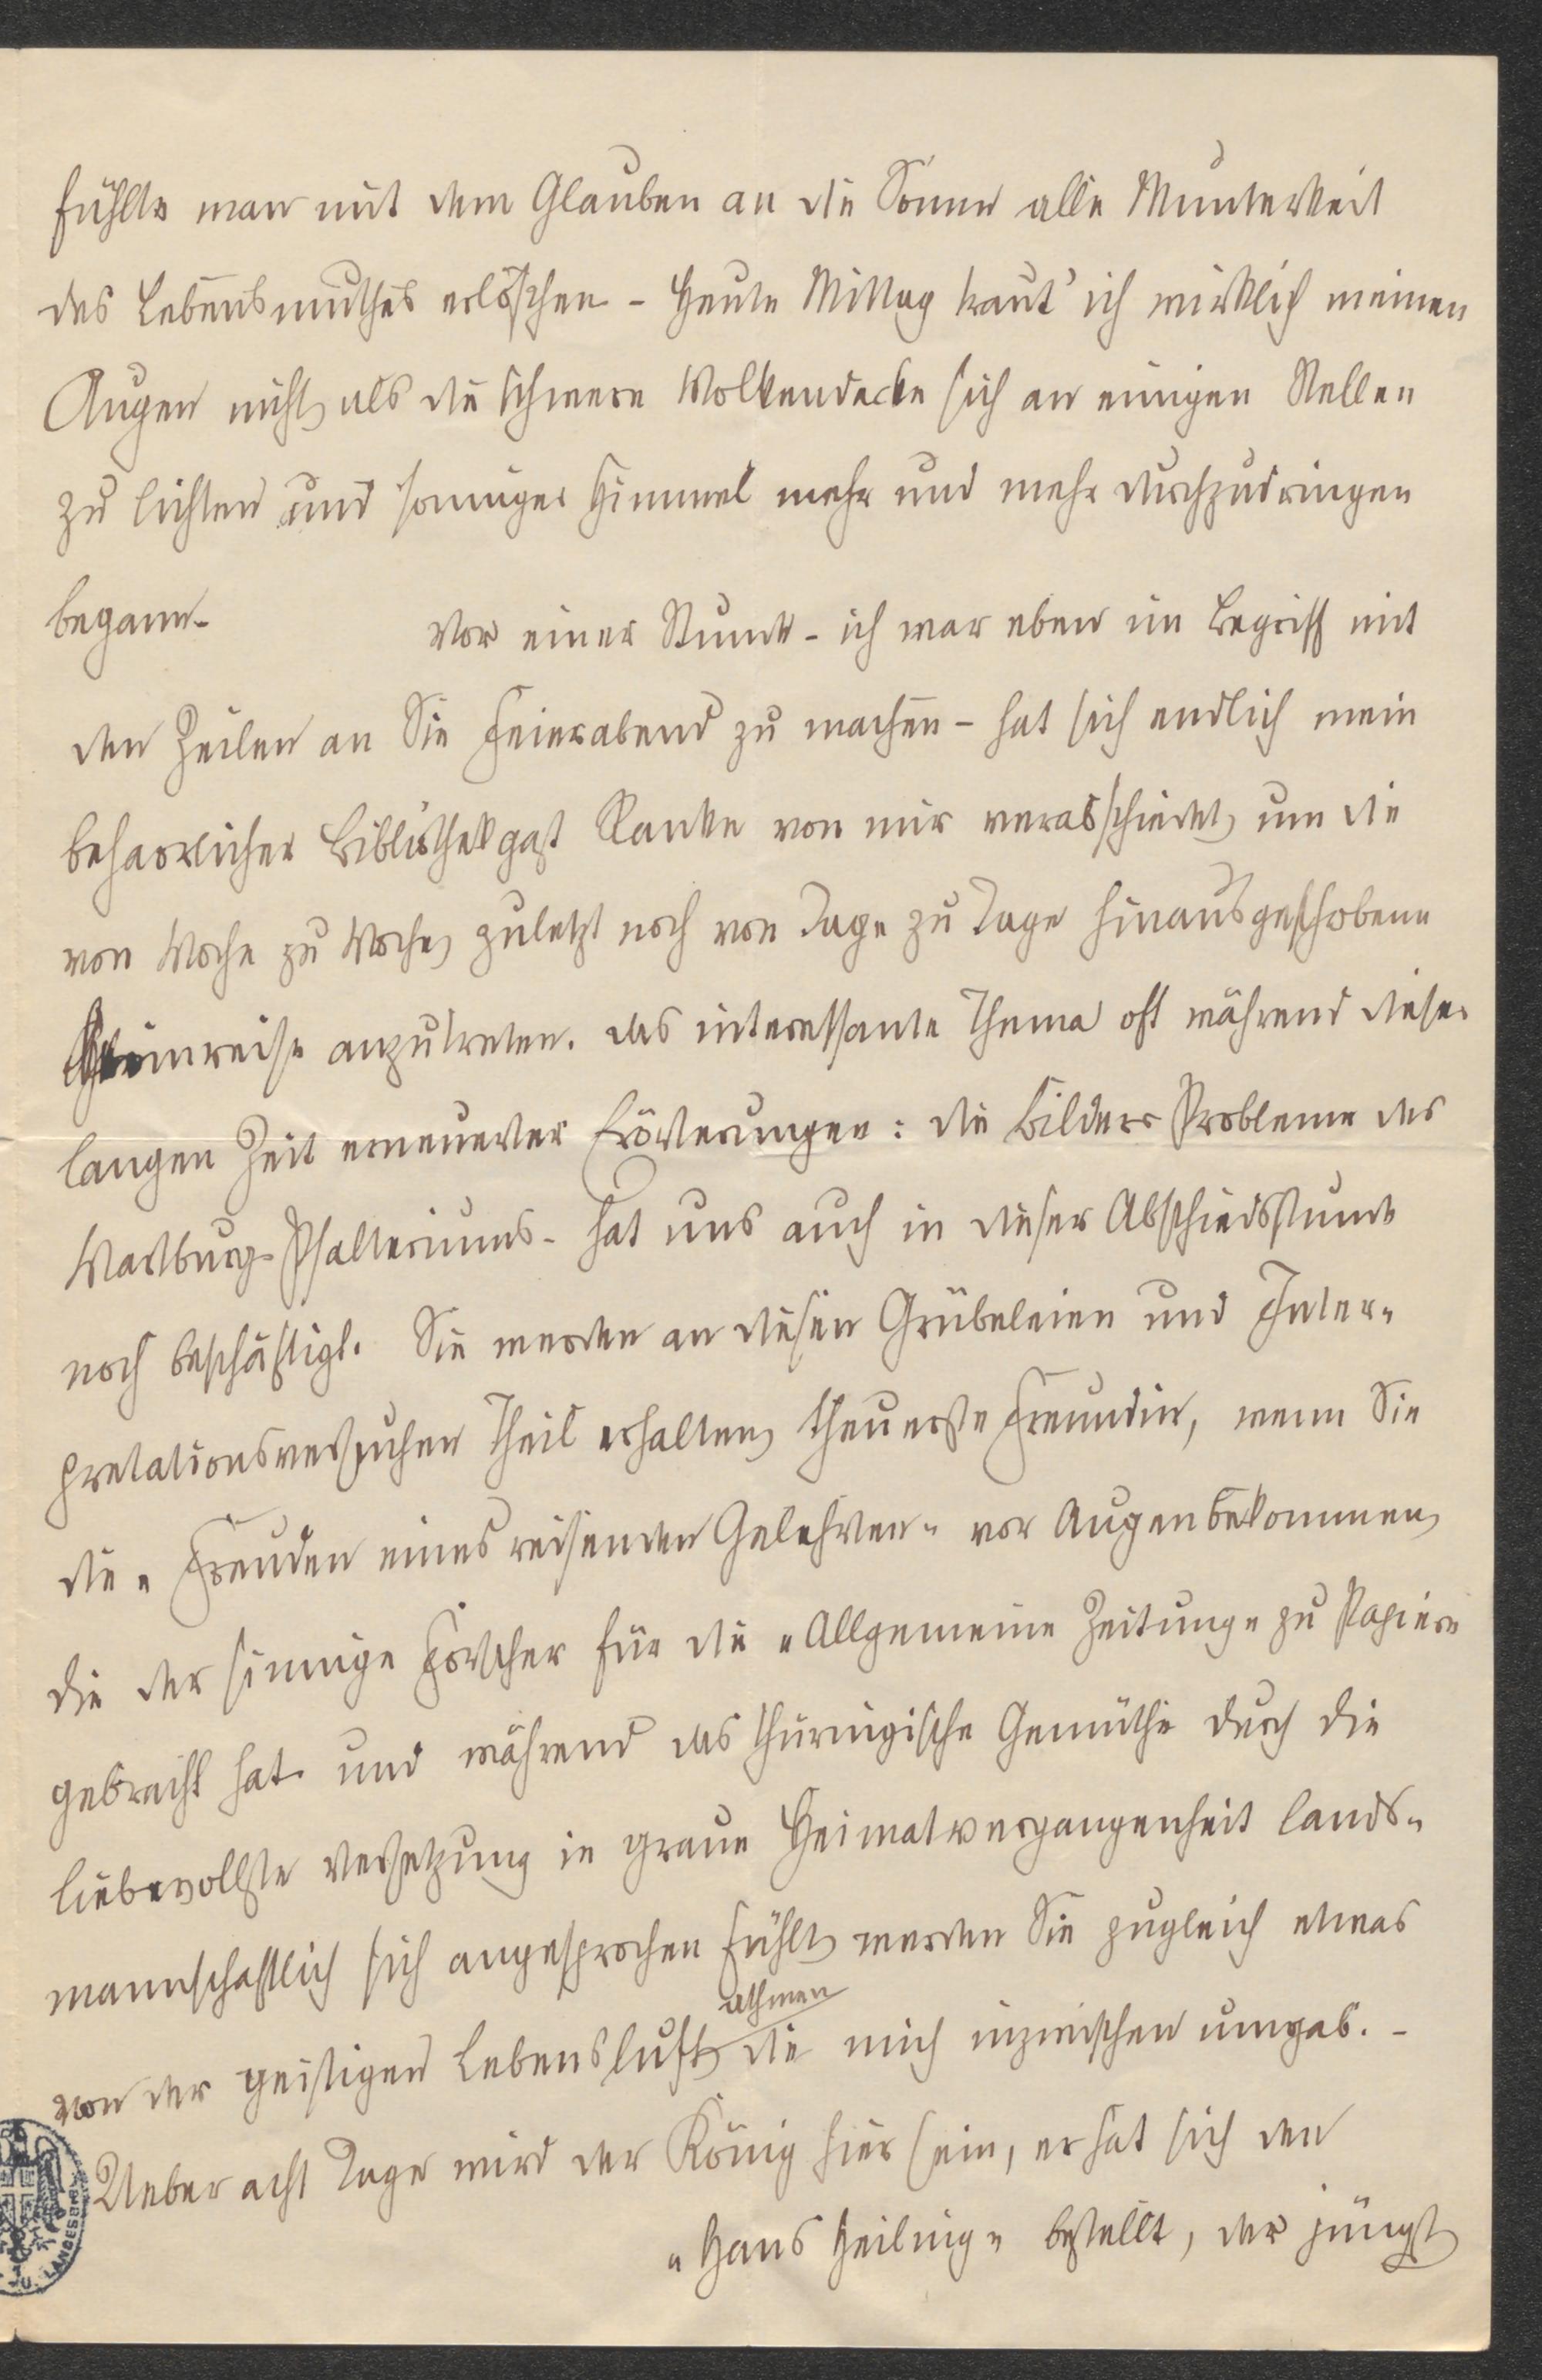 fühlte man mit dem Glauben an die Sonne alle Munterkeit
des Lebensmuthes erlöschen – Heute Mittag traut' ich wirklich meinen
Augen nicht, als die schwere Wolkendecke sich an einigen Stellen
zu lichten und sonniger Himmel mehr und mehr durchzudringen
begann.
Vor einer Stunde – ich war eben im Begriff mit
den Zeilen an Sie Feierabend zu machen – hat sich endlich mein
beharrlicher Bibliothekgast Ranke von mir verabschiedet, um die
von Woche zu Woche, zuletzt noch von Tage zu Tage hinausgeschobene
Heimreise anzutreten. Das interessante Thema oft während dieser
langen Zeit erneuerter Erörterungen: die Bilder-Probleme des
Wartburg-Psalteriums – hat uns auch in dieser Abschiedsstunde
noch beschäftigt. Sie werden an diesen Grübeleien und Inter-
pretationsversuchen Theil erhalten, theuerste Freundin, wenn Sie
die „Freuden eines reisenden Gelehrten" vor Augen bekommen,
die der sinnige Forscher für die „Allgemeine Zeitung" zu Papiere
gebracht hat. und während das thüringische Gemüthe durch die
liebevollste Versetzung in graue Heimatvergangenheit lands-
mannschaftlich sich angesprochen fühlt, werden Sie zugleich etwas
athmen
von der geistigen Lebensluft, die mich inzwischen umgab. –
Ueber acht Tage wird der König hier sein, er hat sich den
„Hans Heiling" bestellt, der jüngst